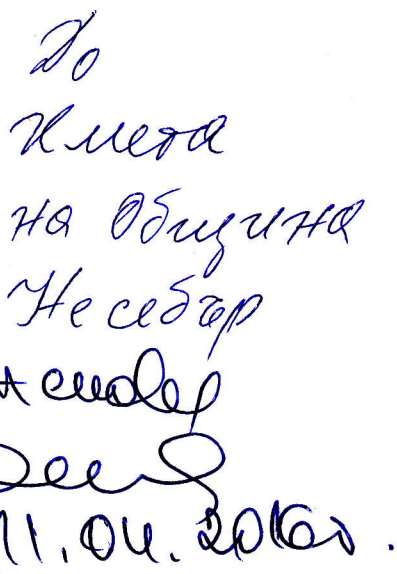 До
Кмета
на Община
Несебър
11.04.2016г.